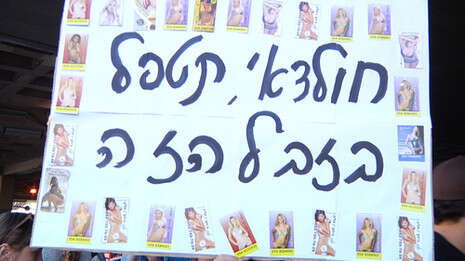 חולדאי, תטפל
בזבל הזה